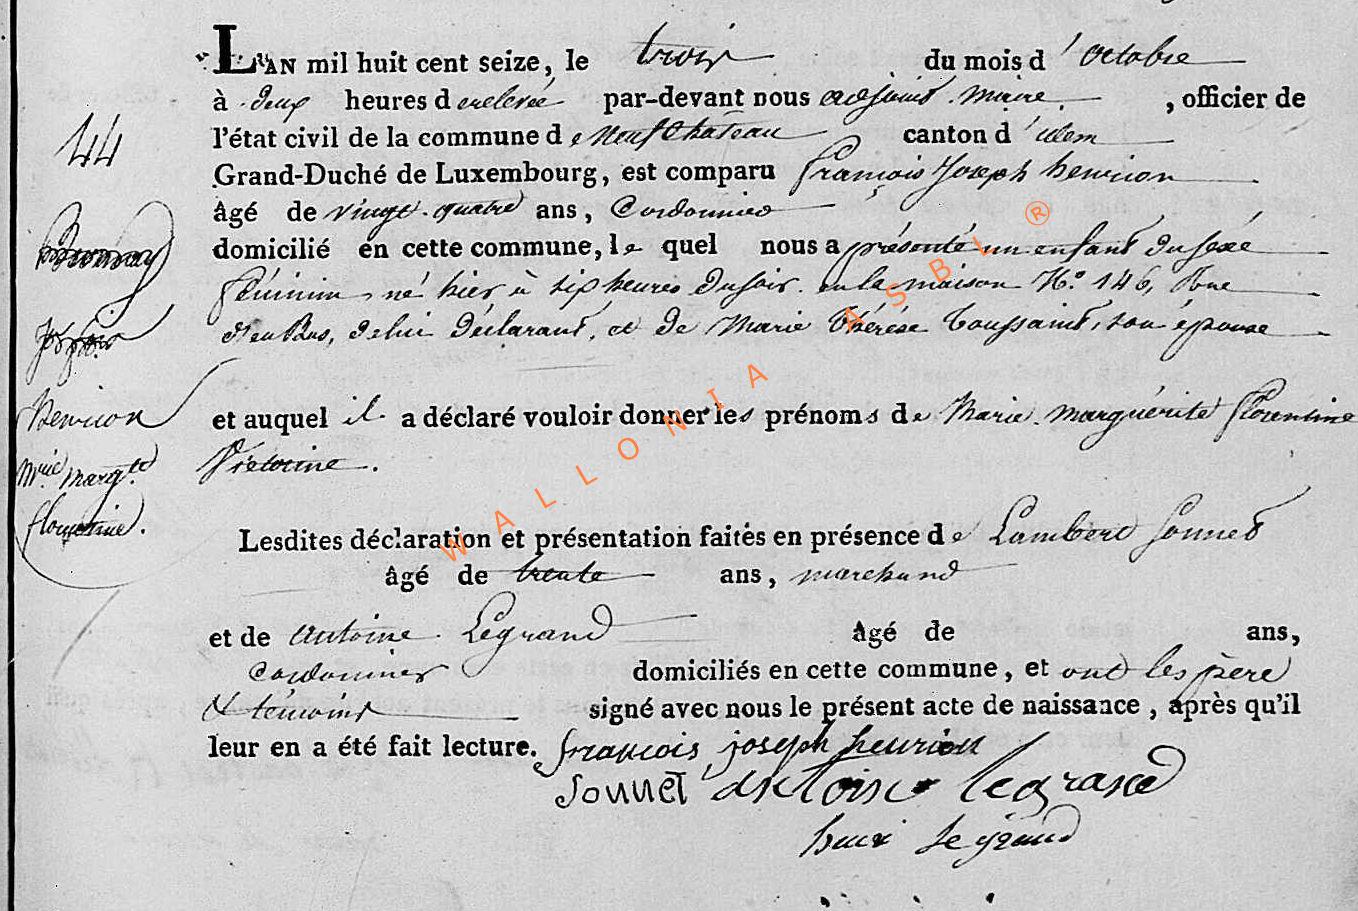 L'AN mil huit cent seize, le trois du mois d'octobre
à deux heures de relevée par-devant nous adjoint maire, officier de
l'état civil de la commune de Neufchateau canton d'idem
Grand-Duché de Luxembourg, est comparu François Joseph henrion
âgé de vingt quatre ans, Cordonnier
domicilié en cette commune, le quel nous a présenté un enfant du sexe
féminin né hier à six heures du soir en la maison N.° 146, Rue
de lui déclarant, et de Marie Thérèse Toussaint, son épouse
et auquel il a déclaré vouloir donner les prénoms de Marie Marguérite florentine
Victorine.
Lesdites déclaration et présentation faites en présence de Lambert Sonnet
âgé de trente ans, marchand
et de Antoine Legrand âgé de ans,
Cordonnier domiciliés en cette commune, et ont les père
& témoins signé avec nous le présent acte de naissance, après qu'il
leur en a été fait lecture. françois joseph henrion
Sonnet antoine legrand
le grand
44
henrion
Mrie margte
florentine.
WALLONIA ASBL ®